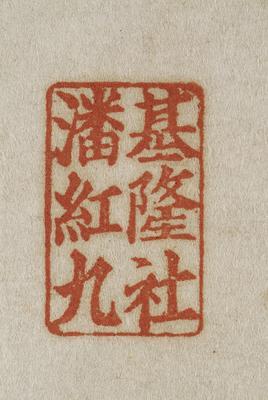 基隆社
潘紅九